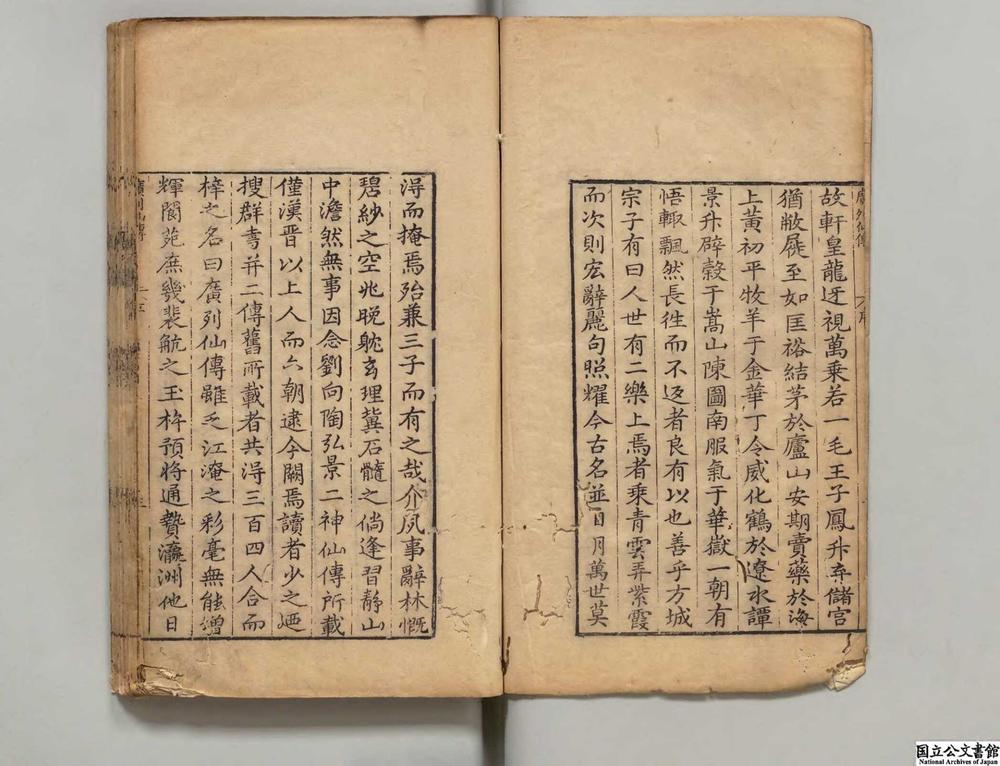 故軒皇龍迓視萬乘若一毛王子鳳升弃儲宫
猶敝屣至如匡裕結茅於廬山安期賣藥於海
上黄初平牧羊于金華丁令威化鶴於遼水譚
景升辟穀于嵩山陳圖南服氣于華嶽一朝有
悟輙飄然長徃而不返者良有以也善乎方城
宗子有曰人世有二樂上焉者乘青雲弄紫霞
而次則宏辭麗句照耀今古名並日月萬世莫
淂而掩焉殆兼三子而有之哉介夙事辭林慨
碧紗之空兆晚躭玄理冀石髓之倘逢習静山
中澹然無事因念劉向陶弘景二神仙傳所載
僅漢晋以上人而六朝逮今闕焉讀者少之廼
搜群書并二傳舊所載者共淂三百四人合而
梓之名曰廣列仙傳雖乏江淹之彩毫無能增
輝閬苑庶幾裴航之玉杵預將通贄瀛洲他日
廣列仙傳
国立公文書館
National Archives of Japan